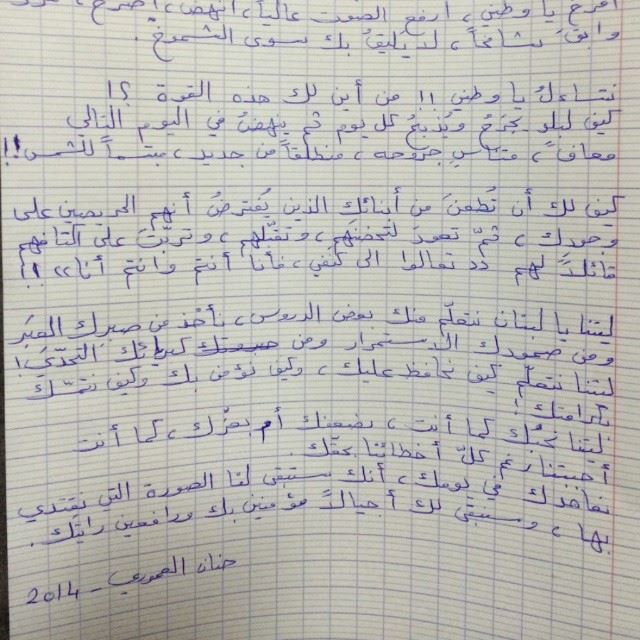 افرح يا وطني، ارفع الصوت عالياً، انهض، اصرخ،
وابقَ شامخاً، لا يليقُ بك سوى الشموخ.
نتساءلُ يا وطني!! من أين لك هذه القوة ؟!
كيف لبلدٍ يُجرَحُ ويُذبَحُ كل يوم ثم ينهضُ في اليوم التالي
معافىً، متناسٍ جروحه، منطلقاً من جديد، مبتسماً للشمس!!
كيف لك أن تُطعَنَ من أبنائك الذين يُفترضُ أنهم الحريصين على
وجودك، ثمّ تعود لتحضنَهم، وتقبّلهم، وتربّتَ على أكتافهم
قائلاً لهم "تعالوا الى كنفي، فأنا أنتم وأنتم أنا" !!
ليتنا يا لبنان نتعلّم منك بعض الدروس، نأخذ من صبرك العِبَر
ومن صمودك الاستمرار ومن كبريائك التحدّي!
ليتنا نتعلّم كيف نحافظ عليك، وكيف نؤمن بك وكيف نتمسّك
بكرامتك!
ليتنا نحبّك كما أنت، بضعفك أم بعزّك، كما أنت
أحببتنا رغم كلّ أخطائنا بحقّك.
نعاهدك في يومك، أنك ستبقى لنا الصورة التي نقتدي
بها، وسنبقى لك أجيالاً مؤمنين بك ورافعين رايتك.
حنان العموري - 2014